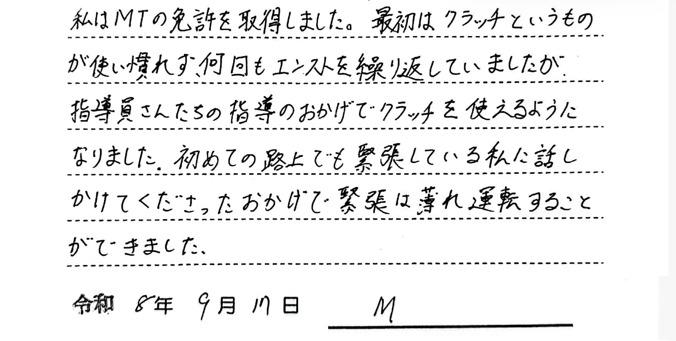 私はMTの免許を取得しました。最初はクラッチというもの
が使い慣れず、何回もエンストを繰り返していましたが、
指導員さんたちの指導のおかげでクラッチを使えるように
なりました。初めての路上でも緊張している私に話し
かけてくださったおかげで緊張は薄れ運転すること
ができました、
令和 8年 9月 17日 M